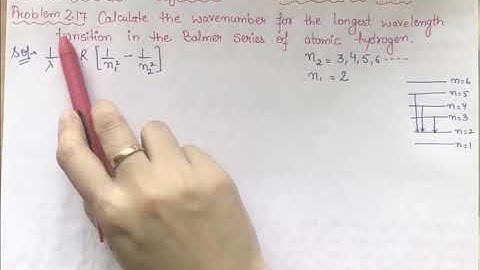 Problem 2.17 Calculate the wavenumber for the longest wavelength
transition in the Balmer series of atomic hydrogen.
Sol:- 1/λ = R [1/n₁² - 1/n₂²]
n₂ = 3, 4, 5, 6 ....
n₁ = 2
n=6
n=5
n=4
n=3
n=2
n=1